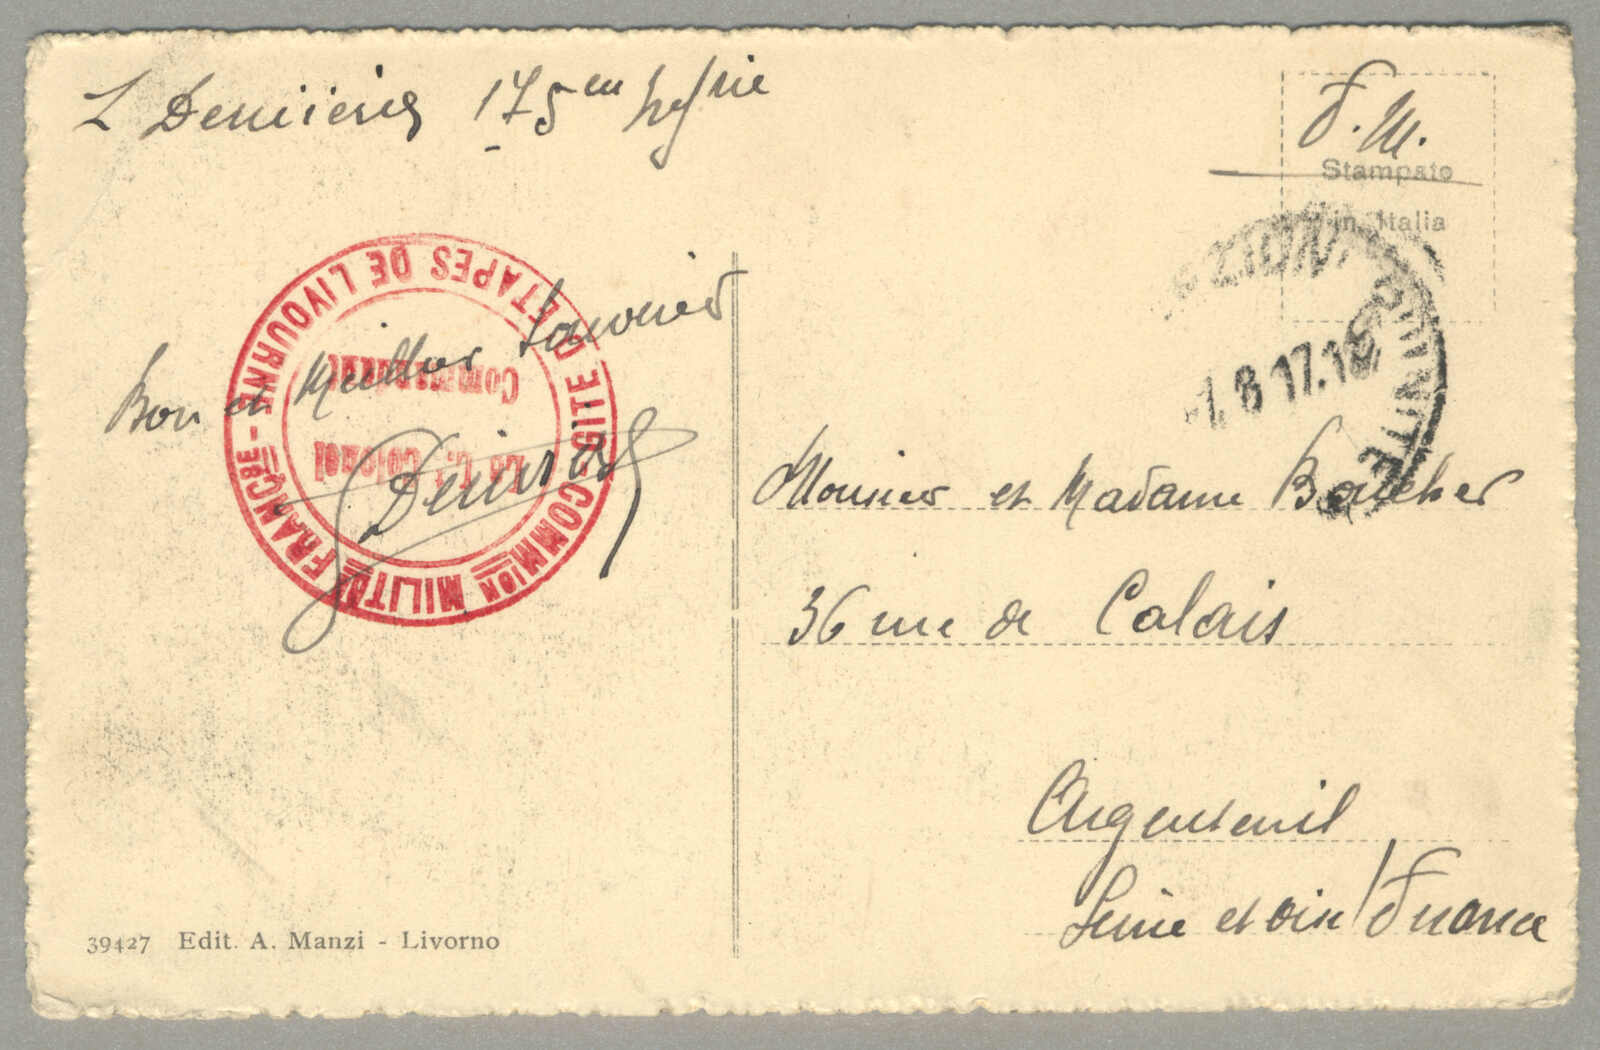 L Demières 175em
F.M.
Stampato
in Italia
COMMION MILITRE FRANÇSE - GITE D'ETAPES DE LIVOURNE -
Le Lt Colonel
Commandant
Bon et Meilleur Souvenir
7.8 17.18
Monsieur et Madame Boucher
36 rue de Calais
Argenteuil
Seine et oise / France
39427 Edit. A. Manzi - Livorno